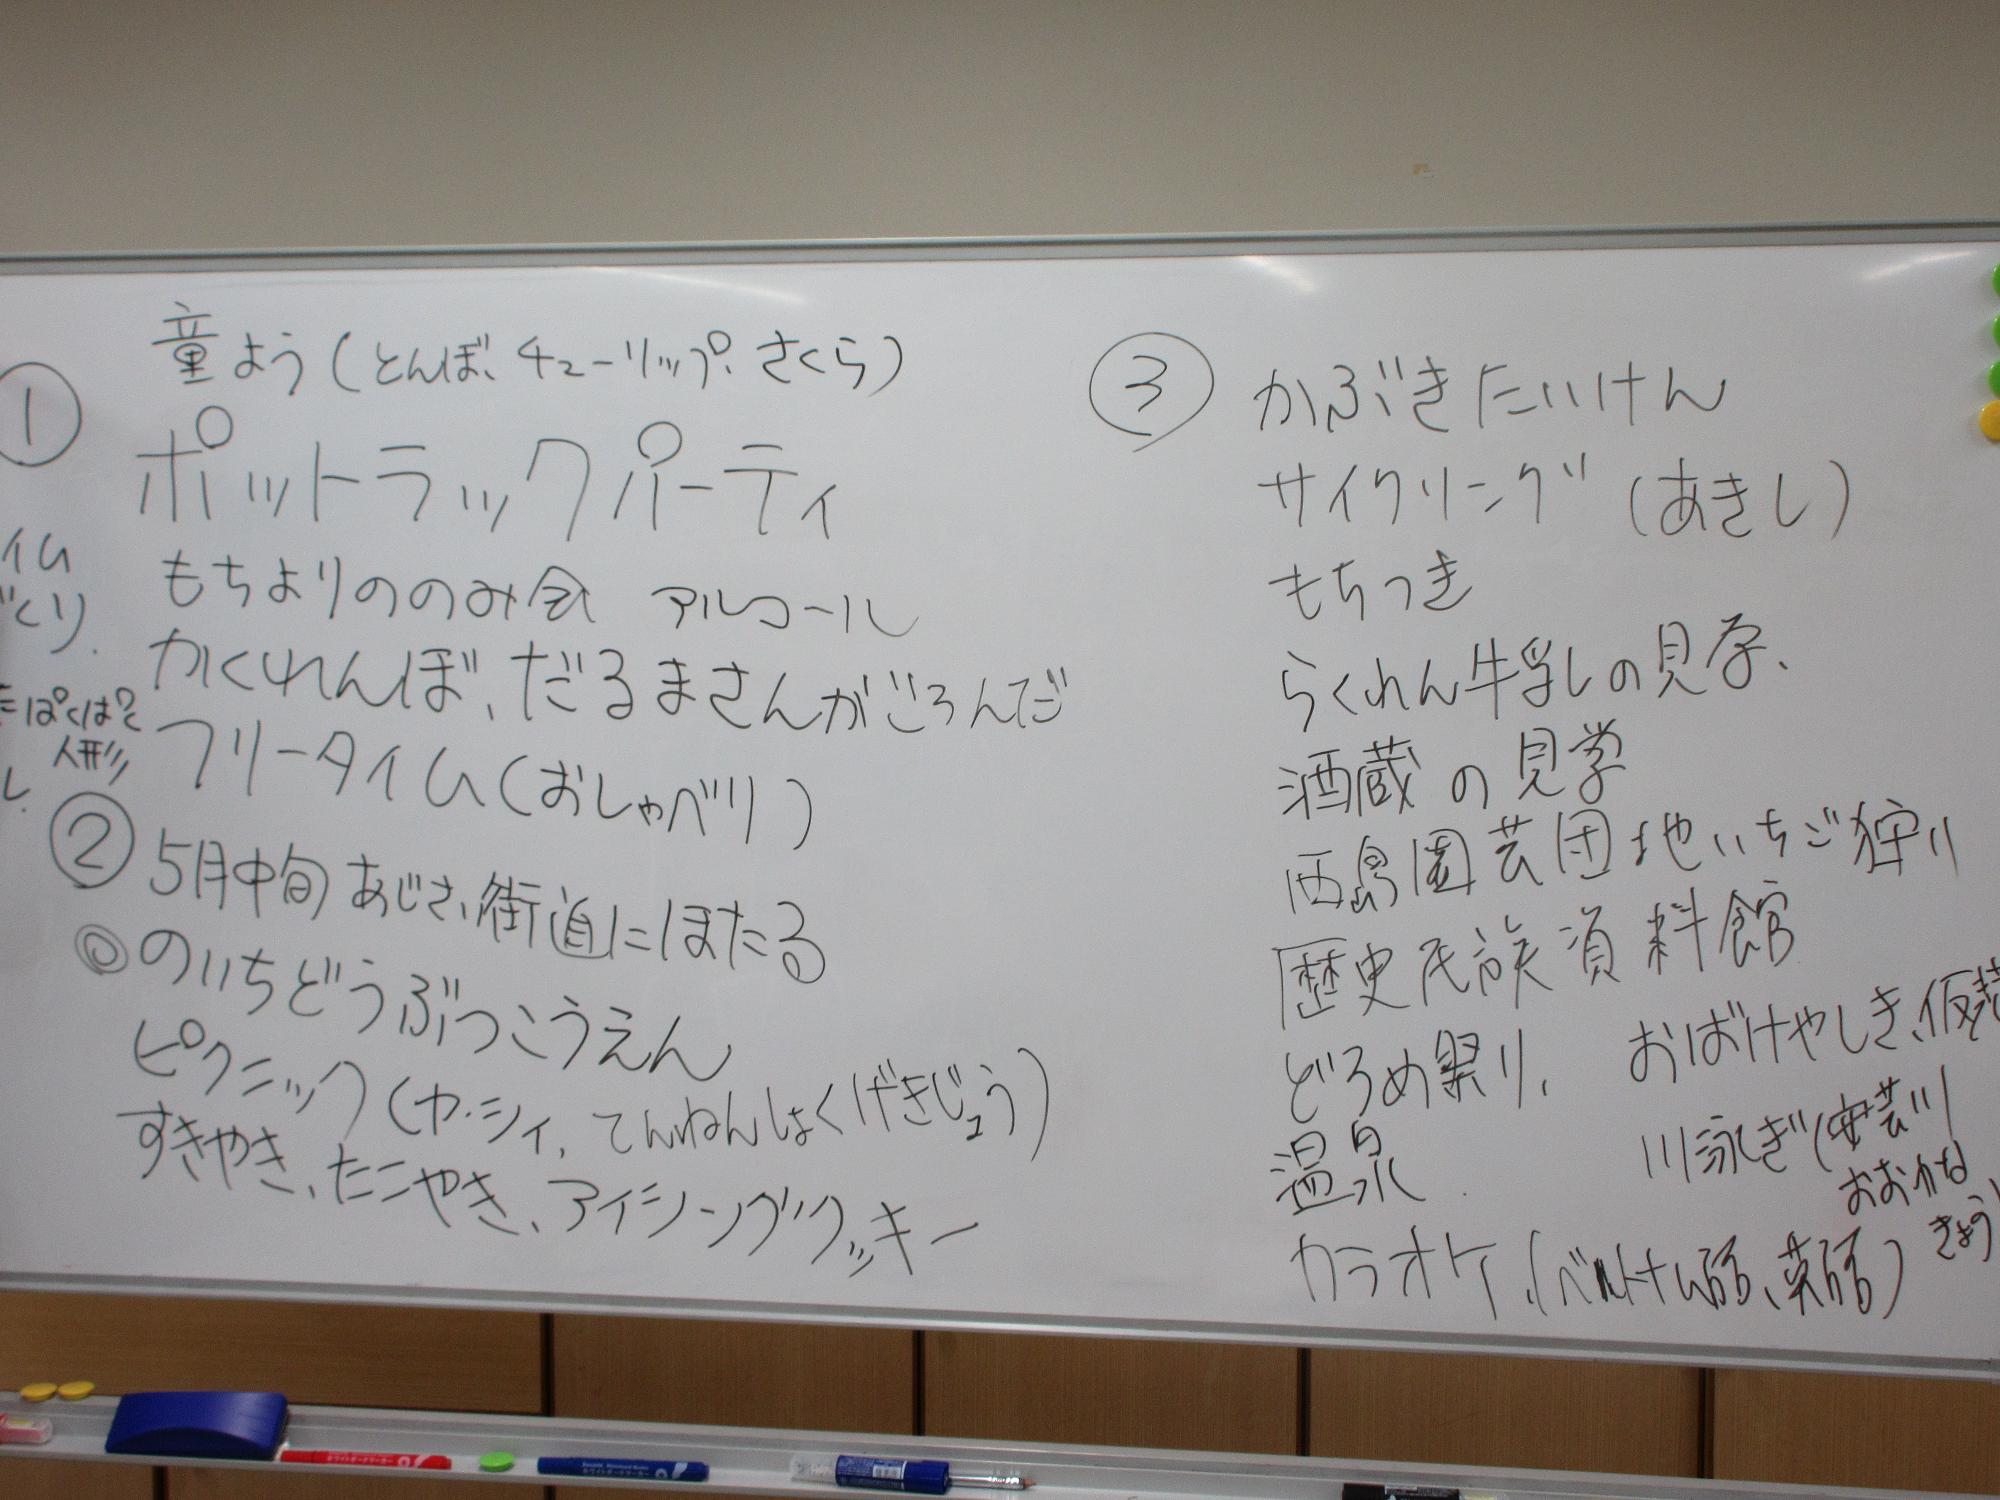 ①
童よう(とんぼ、チューリップ、さくら)
ポットラックパーティ
もちよりののみ会 アルコール
かくれんぼ、だるまさんがころんだ
フリータイム(おしゃべり)
イム
づくり.
ぱくぱく
人形
し.
②
5月中旬 あじさい街道にほたる
◎のいちどうぶつこうえん
ピクニック(ヤ・シィ, てんねんしょくげきじょう)
すきやき、たこやき、アイシングクッキー
③
かぶきたいけん
サイクリング(あきし)
もちつき
らくれん牛乳しの見学、
酒蔵の見学
西島園芸団地いちご狩り
歴史民族資料館
どろめ祭り、 おばけやしき、仮装
温泉. 川泳ぎ(安芸川
おおかな
きょう
カラオケ、(ベルトナム語、英語)